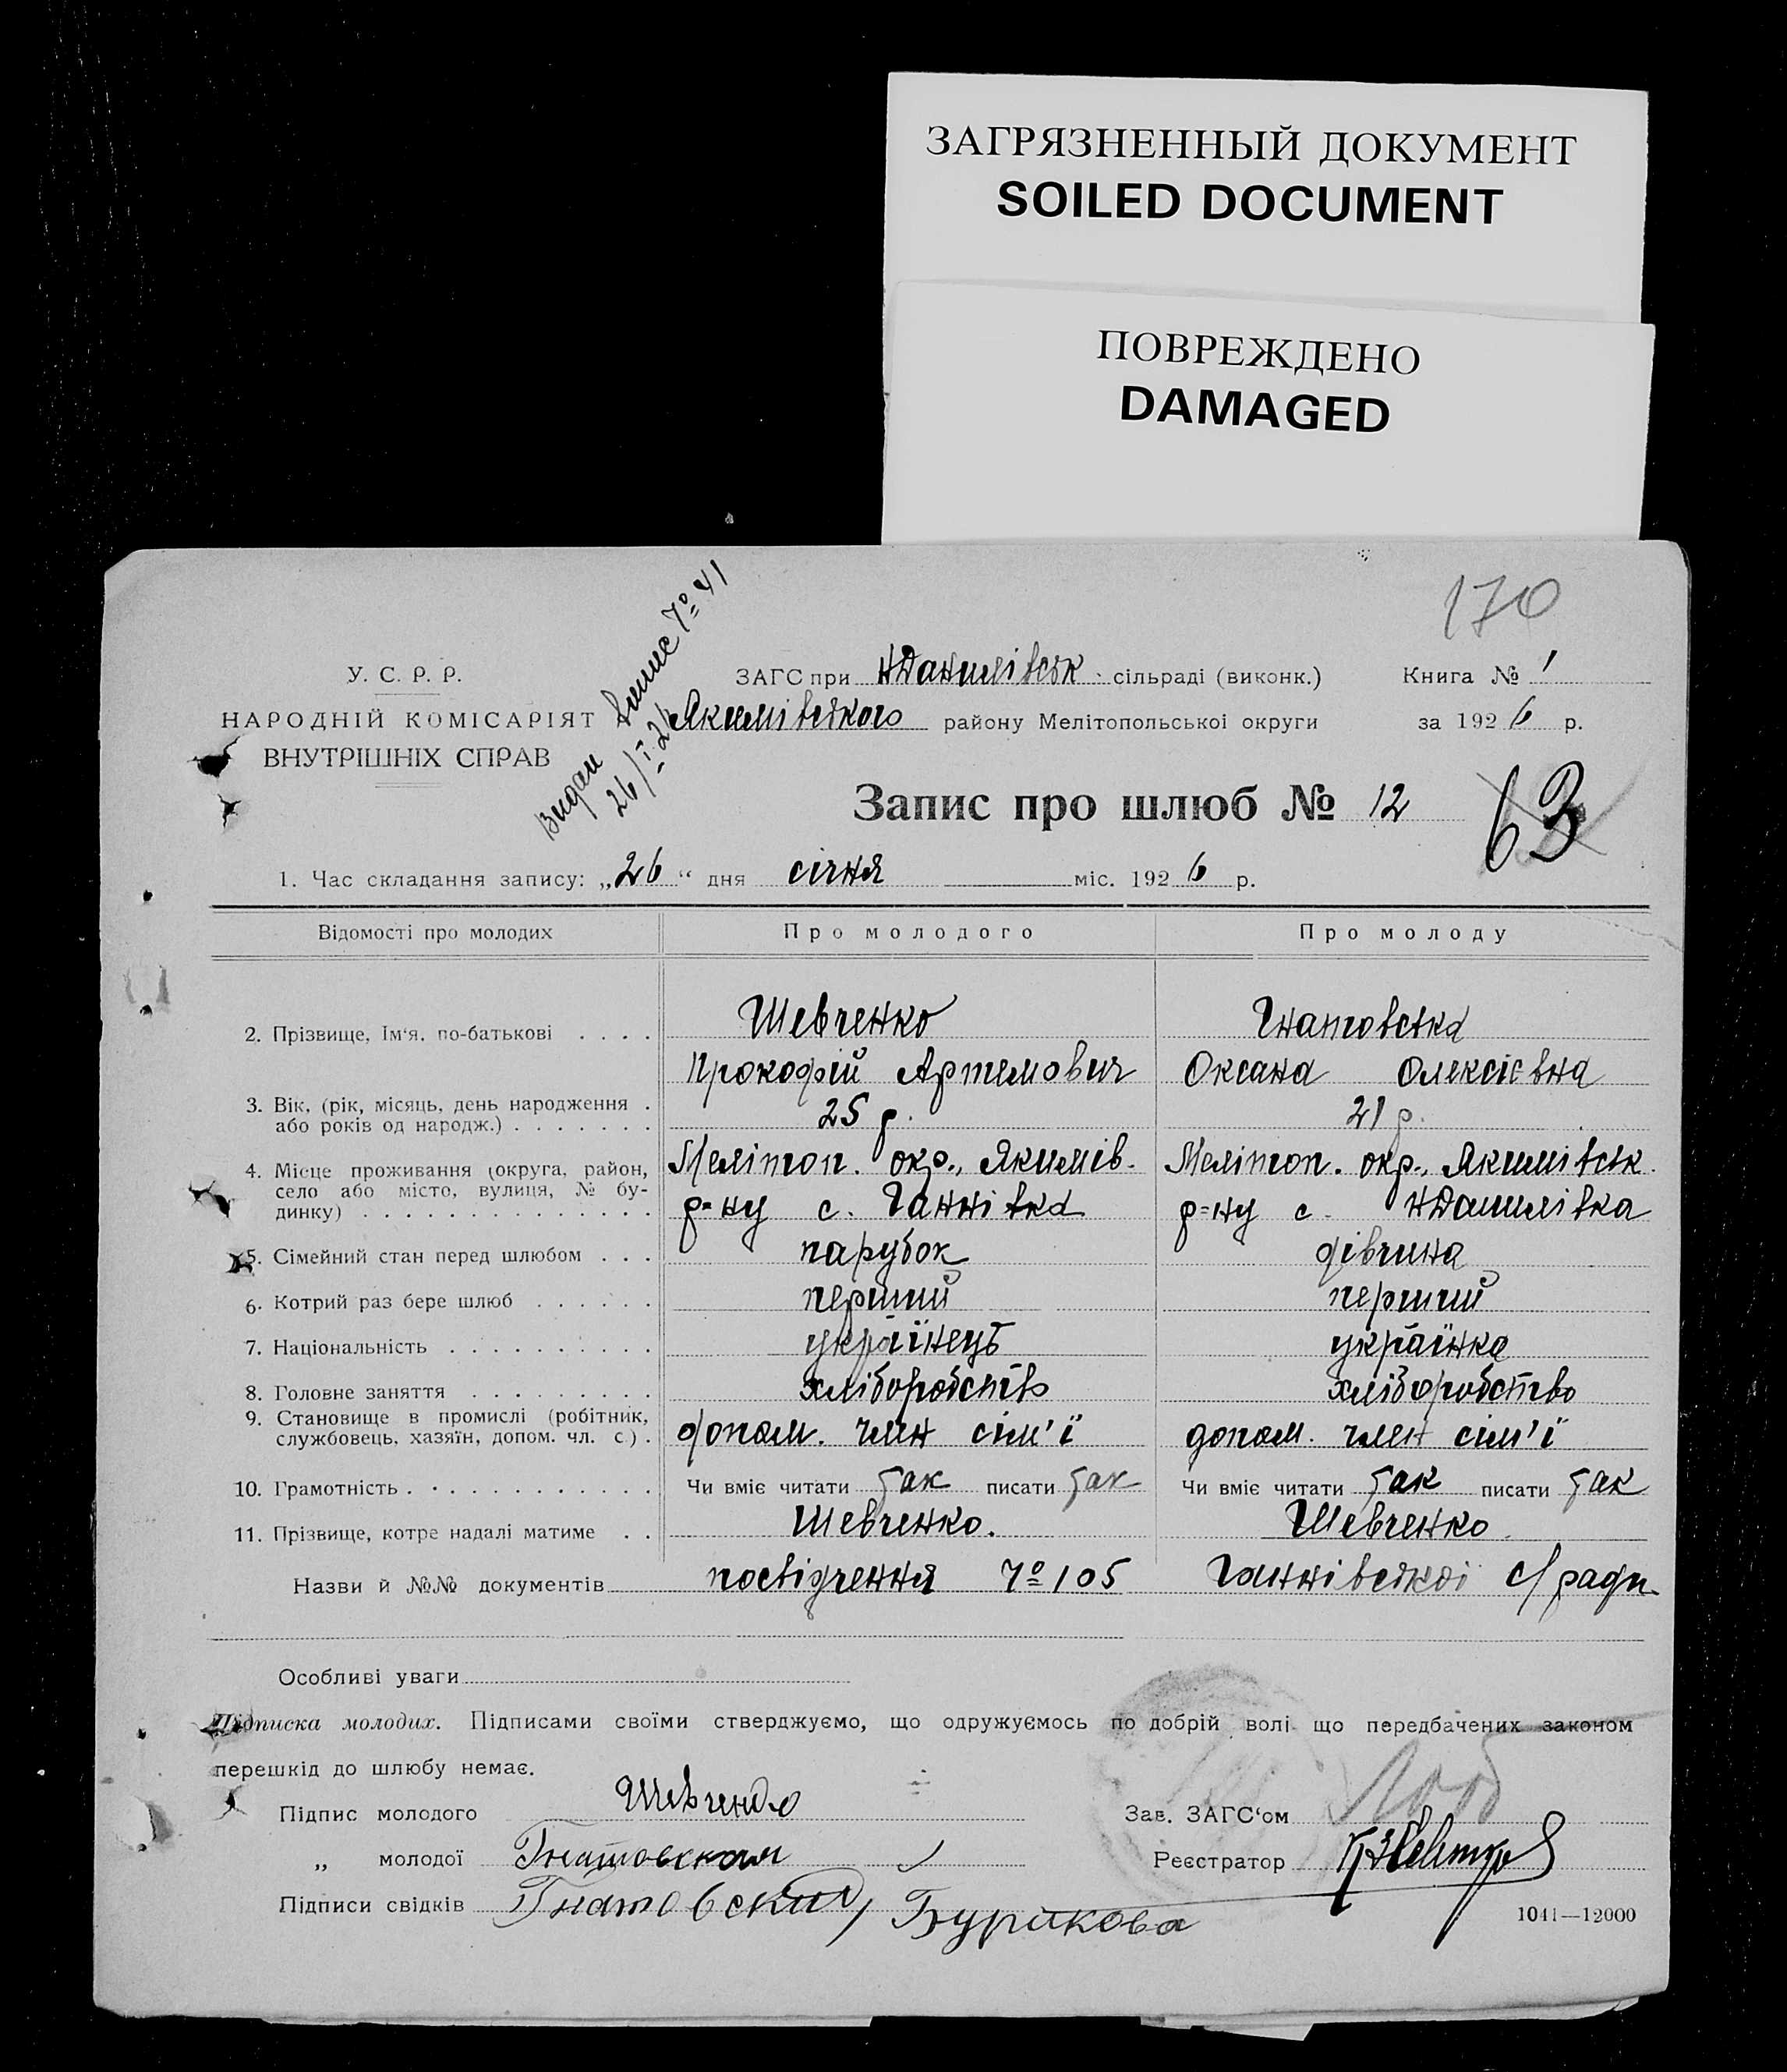 ЗАГРЯЗНЕННЫЙ ДОКУМЕНТ
SOILED DOCUMENT
ПОВРЕЖДЕНО
DAMAGED
170
Видан Випис № 41
26/I-26
У. С. Р. Р.
НАРОДНІЙ КОМІСАРІЯТ
ВНУТРІШНІХ СПРАВ
ЗАГС при НДанилівськ. сільраді (виконк.) Книга № 1
Якимівського району Мелітопольської округи за 1926 р.
Запис про шлюб № 12
63
1. Час складання запису: „26“ дня січня міс. 1926 р.
Відомості про молодих Про молодого Про молоду
Шевченко Гнатовська
2. Прізвище, Ім'я, по-батькові . . . . Прокофій Артемович Оксана Олексієвна
3. Вік, (рік, місяць, день народження .
або років од народж.) . . . . . . . 25 р. 21 р.
4. Місце проживання (округа, район, Мелітоп. окр., Якимів. Мелітоп. окр., Якимівськ.
село або місто, вулиця, № бу-
динку) . . . . . . . . . . . . . . р=ну с. Ганнівка р=ну с. НДанилівка
5. Сімейний стан перед шлюбом . . . парубок дівчина
6. Котрий раз бере шлюб . . . . . . перший перший
7. Національність . . . . . . . . . . українець українка
8. Головне заняття . . . . . . . . . хліборобство хліборобство
9. Становище в промислі (робітник,
службовець, хазяїн, допом. чл. с.) . допом. член сім'ї допом. член сім'ї
10. Грамотність . . . . . . . . . . . . Чи вміє читати так писати так Чи вміє читати так писати так
11. Прізвище, котре надалі матиме . . Шевченко. Шевченко.
Назви й №№ документів посвідчення № 105 Ганнівської с/ради
Особливі уваги
Підписка молодих. Підписами своїми стверджуємо, що одружуємось по добрій волі що передбачених законом
перешкід до шлюбу немає.
Підпис молодого Шевченко Зав. ЗАГС'ом
„ молодої Гнатовская Реєстратор
Підписи свідків Гнатовский Бурикова
1041—12000